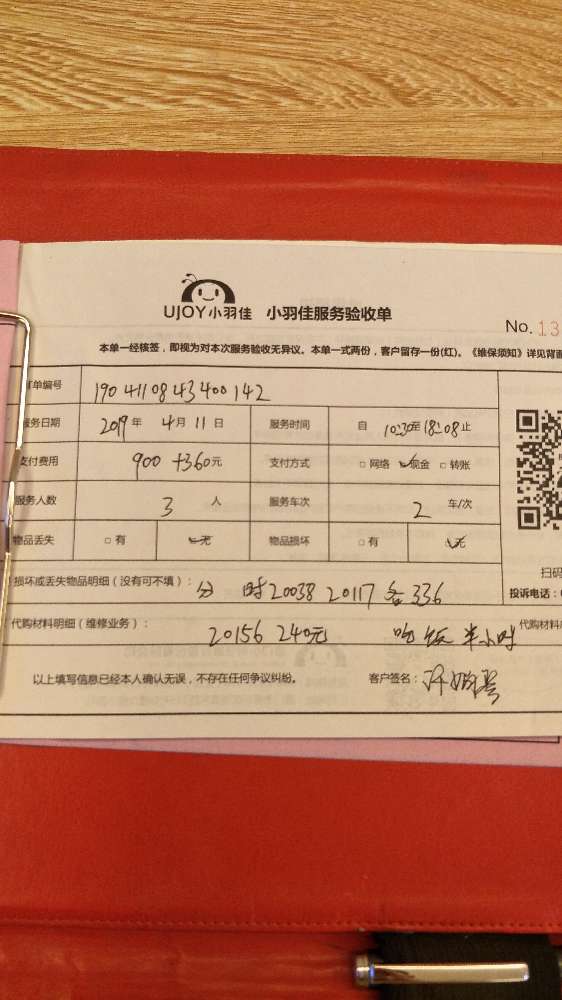 UJOY小羽佳 小羽佳服务验收单
No. 13
本单一经核签，即视为对本次服务验收无异议。本单一式两份，客户留存一份(红)。《维保须知》详见背面
单编号 1904110843400142
服务日期 2019年 4月 11日 服务时间 自 10:30至18:08止
支付费用 900+360元 支付方式 □网络 ☑现金 □转账
服务人数 3 人 服务车次 2 车/次
物品丢失 □有 ☑无 物品损坏 □有 ☑无
扫码
损坏或丢失物品明细（没有可不填）： 分 时20038 20117 各336
投诉电话：
代购材料明细（维修业务）： 20156 240元 吃饭半小时
代购材料
以上填写信息已经本人确认无误，不存在任何争议纠纷。 客户签名：